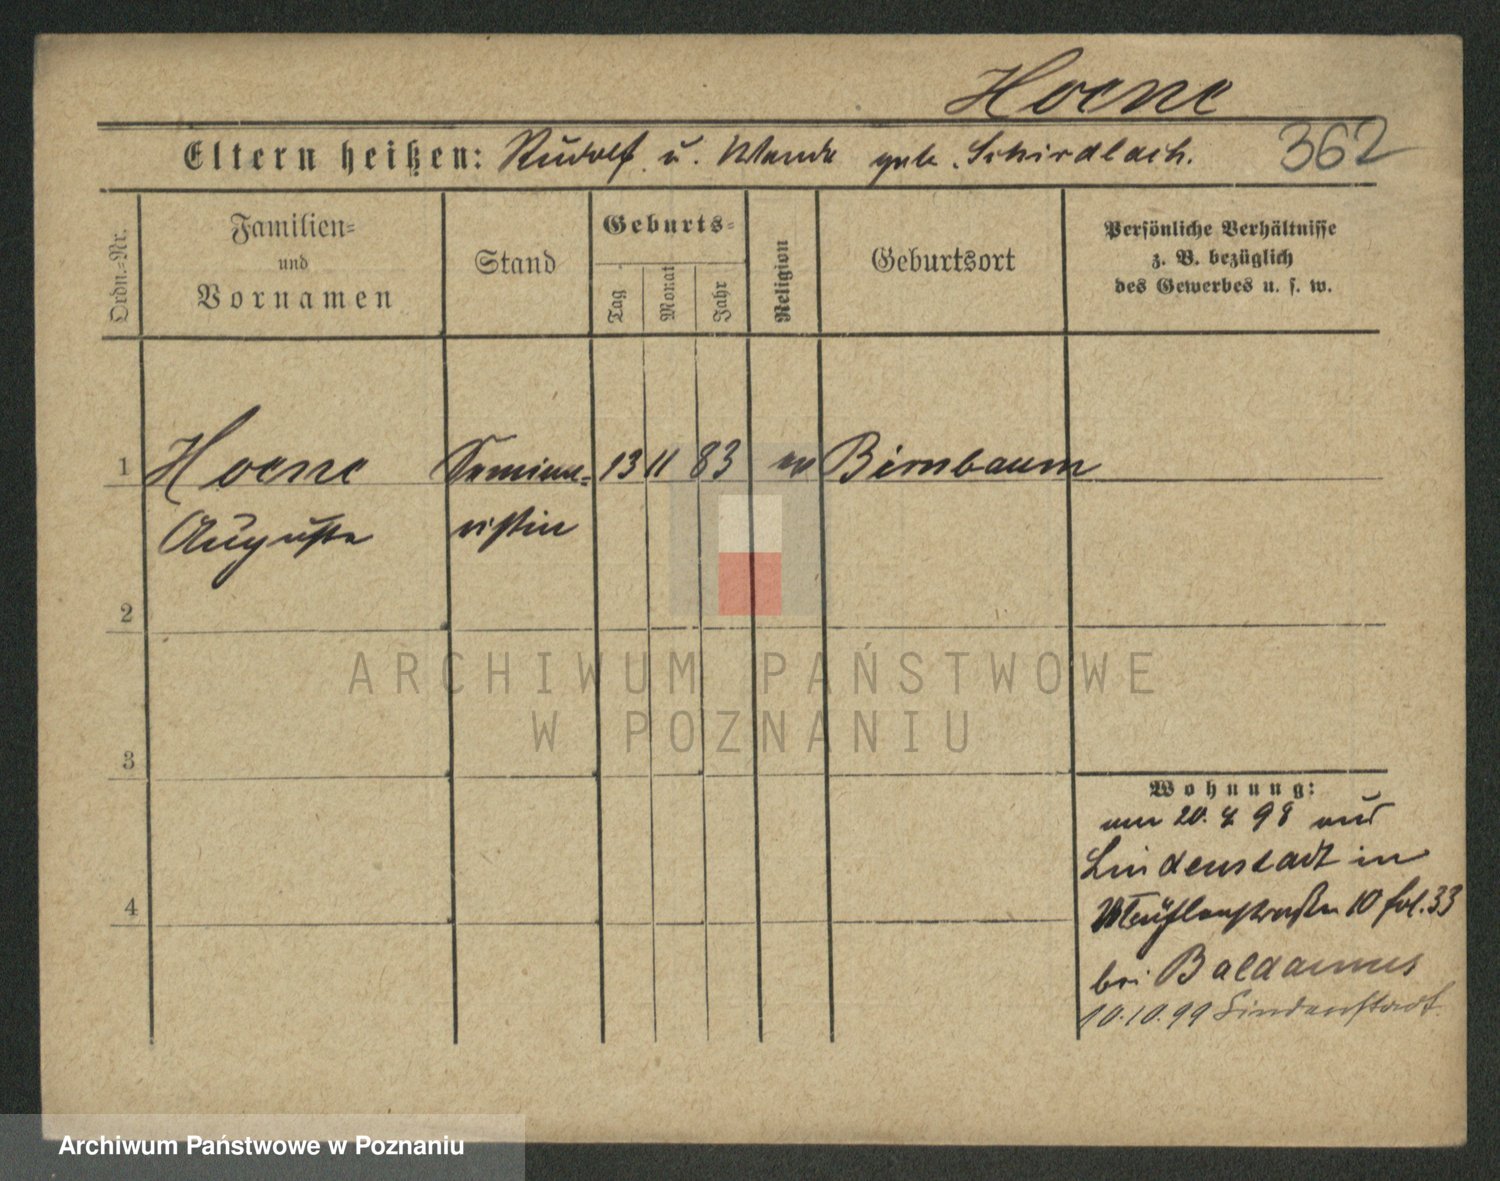 Hoene
Eltern heißen: Rudolf u. Wanda geb. Schirdlach.
362
Ordn.-Nr.
Familien-
und
Vornamen
Stand
Geburts-
Tag
Monat
Jahr
Religion
Geburtsort
Persönliche Verhältnisse
z. B. bezüglich
des Gewerbes u. s. w.
1 Hoene Semina- 13 11 83 ev Birnbaum
Auguste ristin
2
3
4
ARCHIWUM PAŃSTWOWE
W POZNANIU
Wohnung:
am 20. 4 98 aus
Lindenstadt in
Mühlenstraße 10 fol. 33
bei Baldamus
10.10.99 Lindenstadt
Archiwum Państwowe w Poznaniu